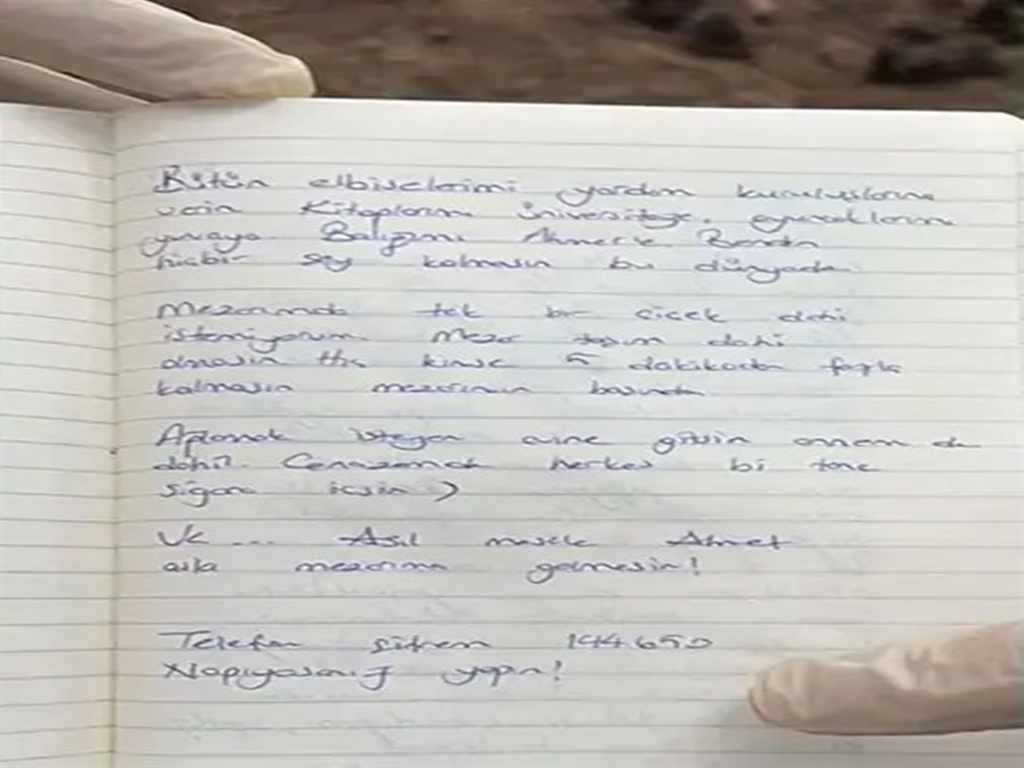 Bütün elbiselerimi yardım kuruluşlarına
verin Kitaplarımı üniversiteye, oyuncaklarımı
yuvaya Balığımı Ahmet'e Benden
hiçbir şey kalmasın bu dünyada.
Mezarımda tek bir çiçek dahi
istemiyorum. Mezar taşım dahi
olmasın Hiç kimse 5 dakikadan fazla
kalmasın mezarımın başında
Ağlamak isteyen evine gitsin annem de
dahil. Cenazemde herkes bi tane
sigara içsin :)
Ve ... Asıl mesele Ahmet
asla mezarıma gelmesin!
Telefon şifrem 144650
Napıyosanız yapın!